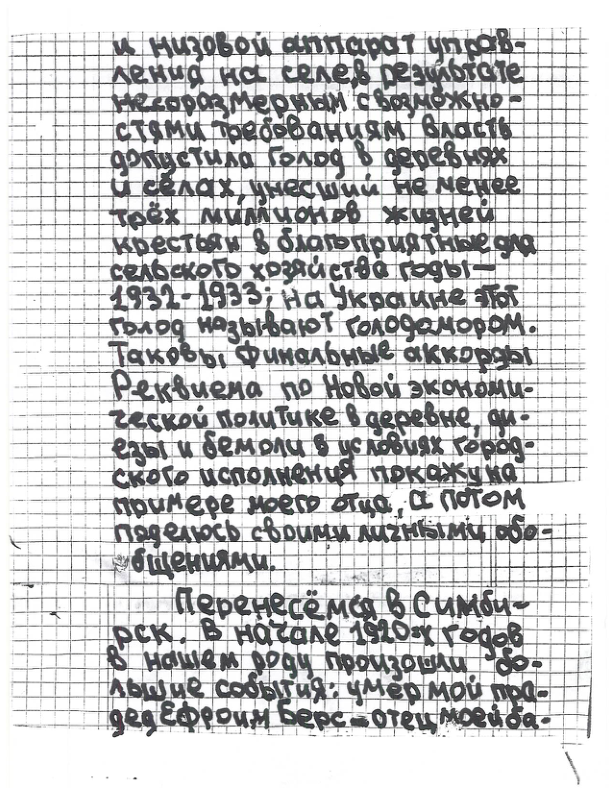 и низовой аппарат управ-
ления на селе, в результате
несоразмерным с возможно-
стями требованиям власть
допустила голод в деревнях
и сёлах, унесший не менее
трёх миллионов жизней
крестьян в благоприятные для
сельского хозяйства годы —
1932-1933; на Украине этот
голод называют голодамором.
Таковы финальные аккорды
Реквиема по Новой экономи-
ческой политике в деревне, ди-
езы и бемоли в условиях город-
ского исполнения покажу на
примере моего отца, а потом
поделюсь своими личными обо-
бщениями.
Перенесёмся в Симби-
рск. В начале 1920-х годов
в нашем роду произошли бо-
льшие события: умер мой пра-
дед Ефроим Берс — отец моей ба-